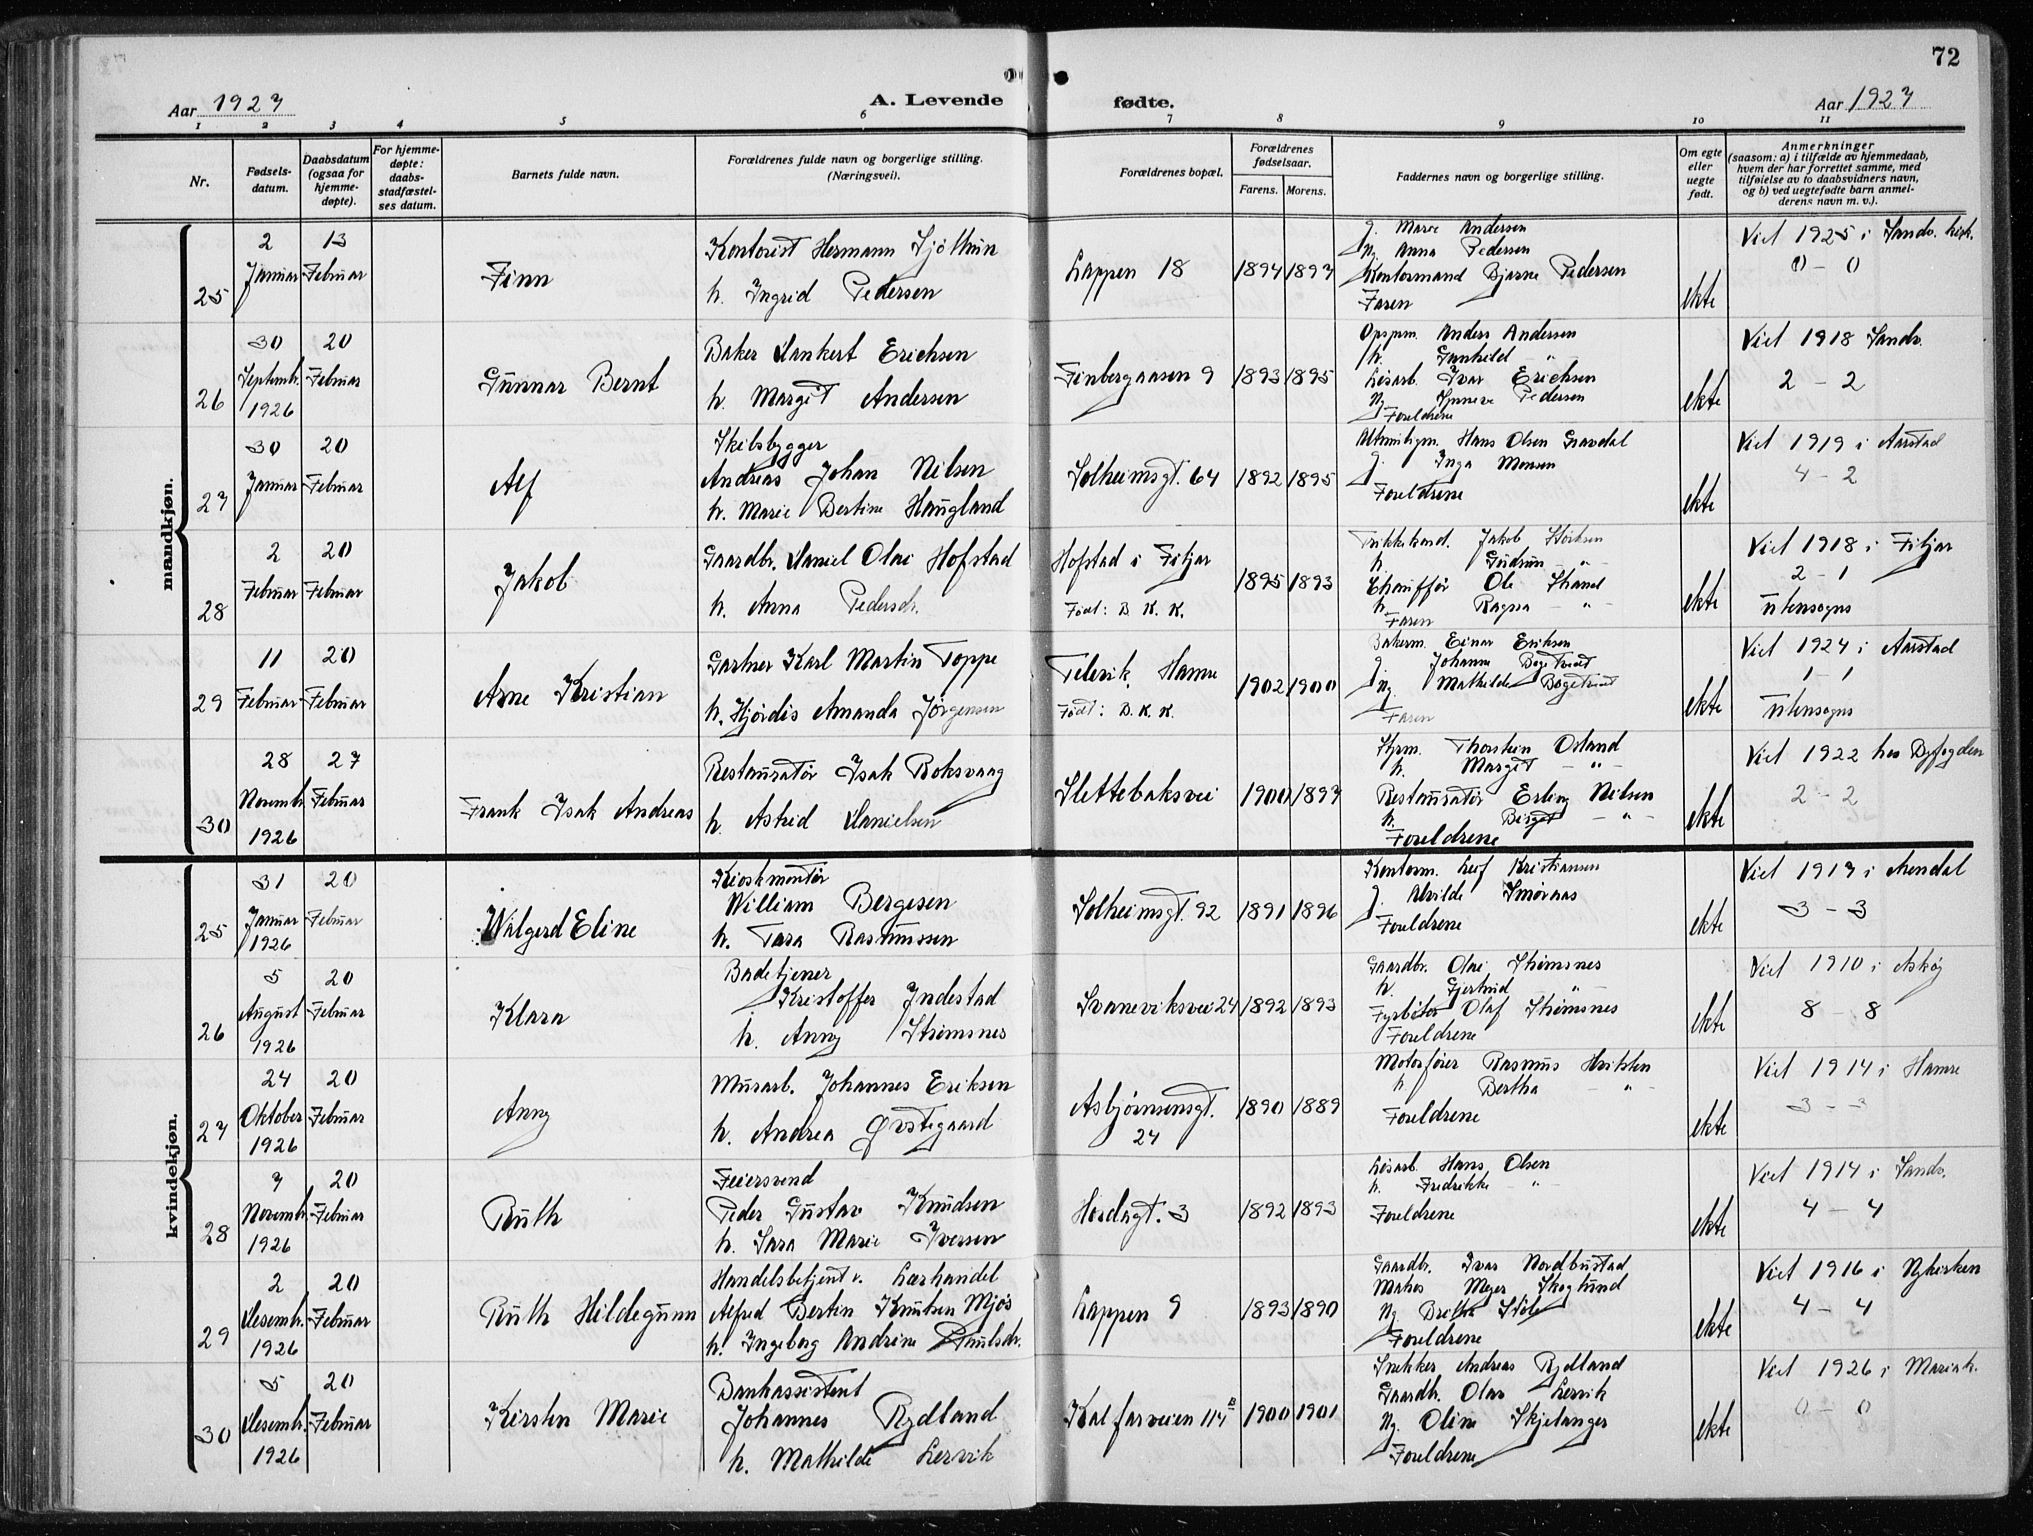 72
Aar 1927
A. Levende
fødte.
Aar 1927
1 2 3 4 5 6 7 8 9 10 11
Nr.
Fødsels-
datum.
Daabsdatum
(ogsaa for
hjemme-
døpte).
For hjemme-
døpte:
daabs-
stadfæstel-
ses datum.
Barnets fulde navn.
Forældrenes fulde navn og borgerlige stilling.
(Næringsvei).
Forældrenes bopæl.
Forældrenes
fødselsaar.
Farens. Morens.
Faddernes navn og borgerlige stilling.
Om egte
eller
uegte
født.
Anmerkninger
(saasom: a) i tilfælde av hjemmedaab,
hvem der har forrettet samme, med
tilføielse av to daabsvidners navn,
og b) ved uegtefødte barn anmel-
derens navn m. v.).
mandkjøn.
25
2
Januar
13
Februar
Finn
Kontorist Hermann Sjöthun
h. Ingrid Pedersen
Lappen 18
1894 1897
J. Marie Andersen
Ng. Anna Pedersen
Kontormand Bjarne Pedersen
Faren
ekte
Viet 1925 i Sandv. kirk.
0 - 0
26
30
Septembr.
1926
20
Februar
Gunnar Bernt
Baker Dankert Erichsen
h. Margit Andersen
Finbergaasen 9
1893 1895
Opspm. Anders Andersen
h. Gunhild - " -
Løsarb. Ivar Erichsen
Ng. Synneve Pedersen
Foreldrene
ekte
Viet 1918 Sandv.
2 - 2
27
30
Januar
20
Februar
Alf
Skibsbygger
Andreas Johan Nilsen
h. Marie Bertine Haugland
Solheimsgt. 64
1892 1895
Hans Olsen Gravdal
J. Inga Monsen
Foreldrene
ekte
Viet 1919 i Aarstad
4 - 2
28
2
Februar
20
Februar
Jakob
Gaardbr. Daniel Olai Hofstad
h. Anna Pedersdr.
Hofstad i Fitjar
Født: B. K. K.
1895 1893
Trikkekond. Jakob
h. Gudrun - " -
Chauffør Ole Strand
h. Ragna - " -
Faren
ekte
Viet 1918 i Fitjar
2 - 1
utensogns
29
11
Februar
20
Februar
Arne Kristian
Gartner Karl Martin Toppe
h. Hjördis Amanda Jörgensen
Tellevik, Hamre
Født: B. K. K.
1902 1900
Bakerm. Einar Eriksen
J. Johanna Bøgetveit
Ng. Mathilde Bøgetveit
Faren
ekte
Viet 1924 i Aarstad
1 - 1
utensogns
30
28
Novembr.
1926
27
Februar
Frank Isak Andreas
Restauratør Isak Roksvaag
h. Astrid Danielsen
Slettebaksvei
1900 1897
Styrm. Thorstein Osland
h. Margit - " -
Restauratør Erling Nilsen
h. Birgit - " -
Foreldrene
ekte
Viet 1922 hos Byfogden
2 - 2
kvindekjøn.
25
31
Januar
1926
20
Februar
Walgerd Eline
Kioskmontör
William Bergesen
h. Tara Rasmussen
Solheimsgt. 92
1891 1896
Kontorm. Leif Kristiansen
J. Alvilde Smørnaas
Foreldrene
ekte
Viet 1917 i Arendal
3 - 3
26
5
August
1926
20
Februar
Klara
Badetjener
Kristoffer Indestad
h. Anny Strömsnes
Svaneviksvei 24
1892 1893
Gaardbr. Olai Strömsnes
h. Gjertrud - " -
Fyrbøter Olaf Strömsnes
Foreldrene
ekte
Viet 1910 i Askøy
8 - 8
27
24
Oktober
1926
20
Februar
Anny
Murarb. Johannes Eriksen
h. Andrea Øvstegaard
Asbjørnsensgt.
24
1890 1889
Motorfører Rasmus
h. Bertha - " -
Foreldrene
ekte
Viet 1914 i Hamre
3 - 3
28
7
Novembr.
1926
20
Februar
Ruth
Feiersvend
Peder Gustav Knudsen
h. Sara Marie Iversen
Hordagt. 3
1892 1893
Løsarb. Hans Olsen
h. Fredrikke - " -
Foreldrene
ekte
Viet 1914 i Sandv.
4 - 4
29
2
Desembr.
1926
20
Februar
Ruth Hildegunn
Handelsbetjent v. Lærhandel
Alfred Bertin Knutsen Mjøs
h. Ingeborg Andrine Paulsdr.
Lappen 9
1893 1890
Gaardbr. Ivar Nordbustad
Meyer Skoglund
Ng. Støle
Foreldrene
ekte
Viet 1916 i Nykirken
4 - 4
30
5
Desembr.
1926
20
Februar
Kirsten Marie
Bankassistent
Johannes Rydland
h. Mathilde Lervik
Kalfarveien 114 B
1900 1901
Snekker Andreas Rydland
Gaardb. Olav Lervik
Ng. Oline Skjelanger
Foreldrene
ekte
Viet 1926 i Mariak.
0 - 0